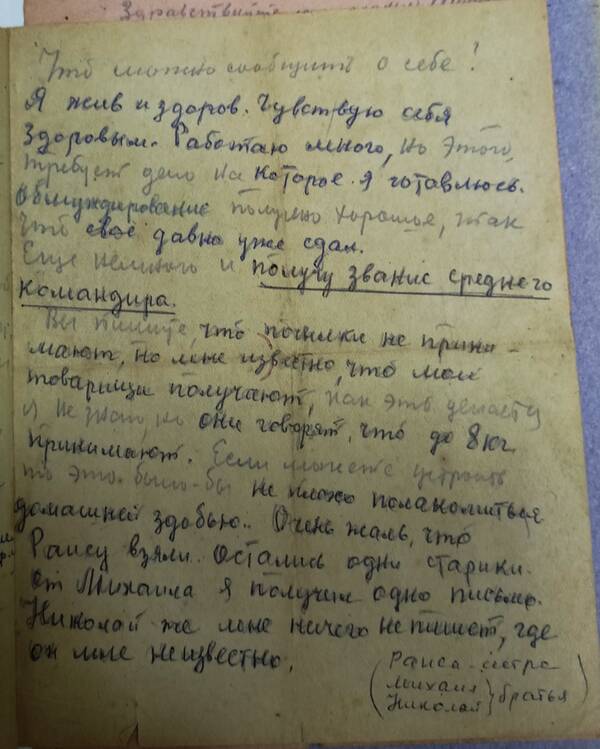 Здравствуйте
Что можно сообщить о себе!
Я жив и здоров. Чувствую себя
здоровым. Работаю много, но этого
требует дело на которое я готовлюсь.
Обмундирование получено хорошое, так
что своё давно уже сдал.
Еще немного и получу звание среднего
командира.
Вы пишите, что посылки не прини-
мают, но мне известно, что мои
товарищи получают, как это делается
я не знаю, но они говорят, что до 8 кг.
принимают. Если можете устроить
то это было-бы не плохо полакомиться
домашней здобью.. Очень жаль, что
Раису взяли. Остались одни старики.
От Михаила я получил одно письмо.
Николай же мне ничего не пишет, где
он мне неизвестно.
(Раиса - сестра
Михаил
Николай } братья)